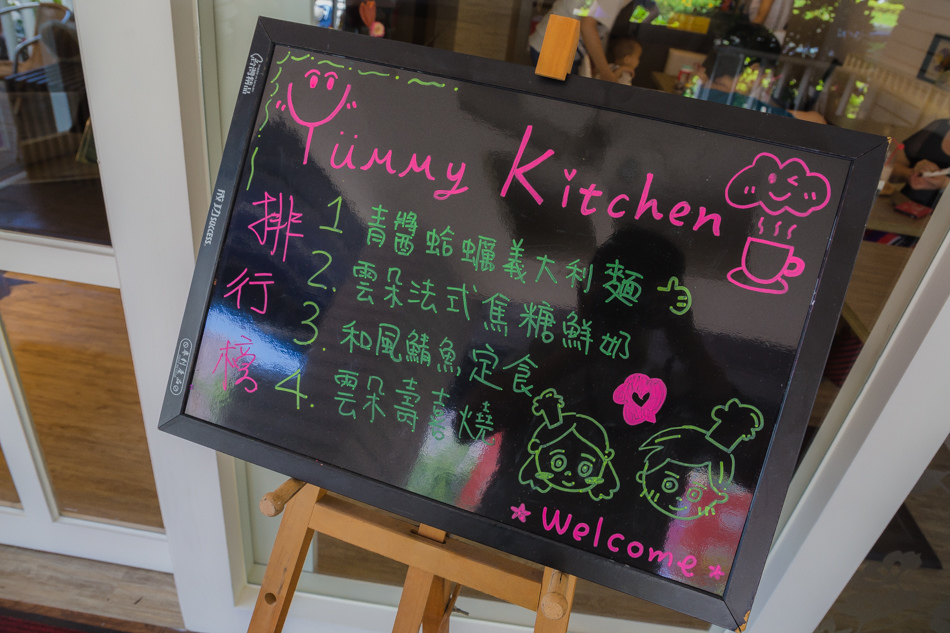 Yümmy Kitchen
排行榜
1 青醬蛤蠣義大利麵
2. 雲朵法式焦糖鮮奶
3. 和風鯖魚定食
4. 雲朵壽喜燒
*Welcome*